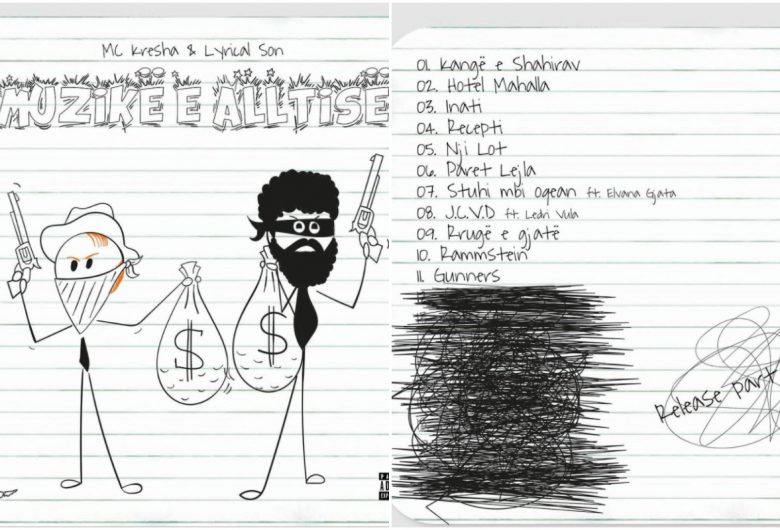 MC Kresha & Lyrical Son
MUZIKË E ALLTISË
$
$
01. Kangë e Shahirav
02. Hotel Mahalla
03. Inati
04. Recepti
05. Nji Lot
06. Paret Lejla
07. Stuhi mbi oqean ft. Elvana Gjata
08. J.C.V.D ft. Ledri Vula
09. Rrugë e gjatë
10. Rammstein
11. Gunners
Release part